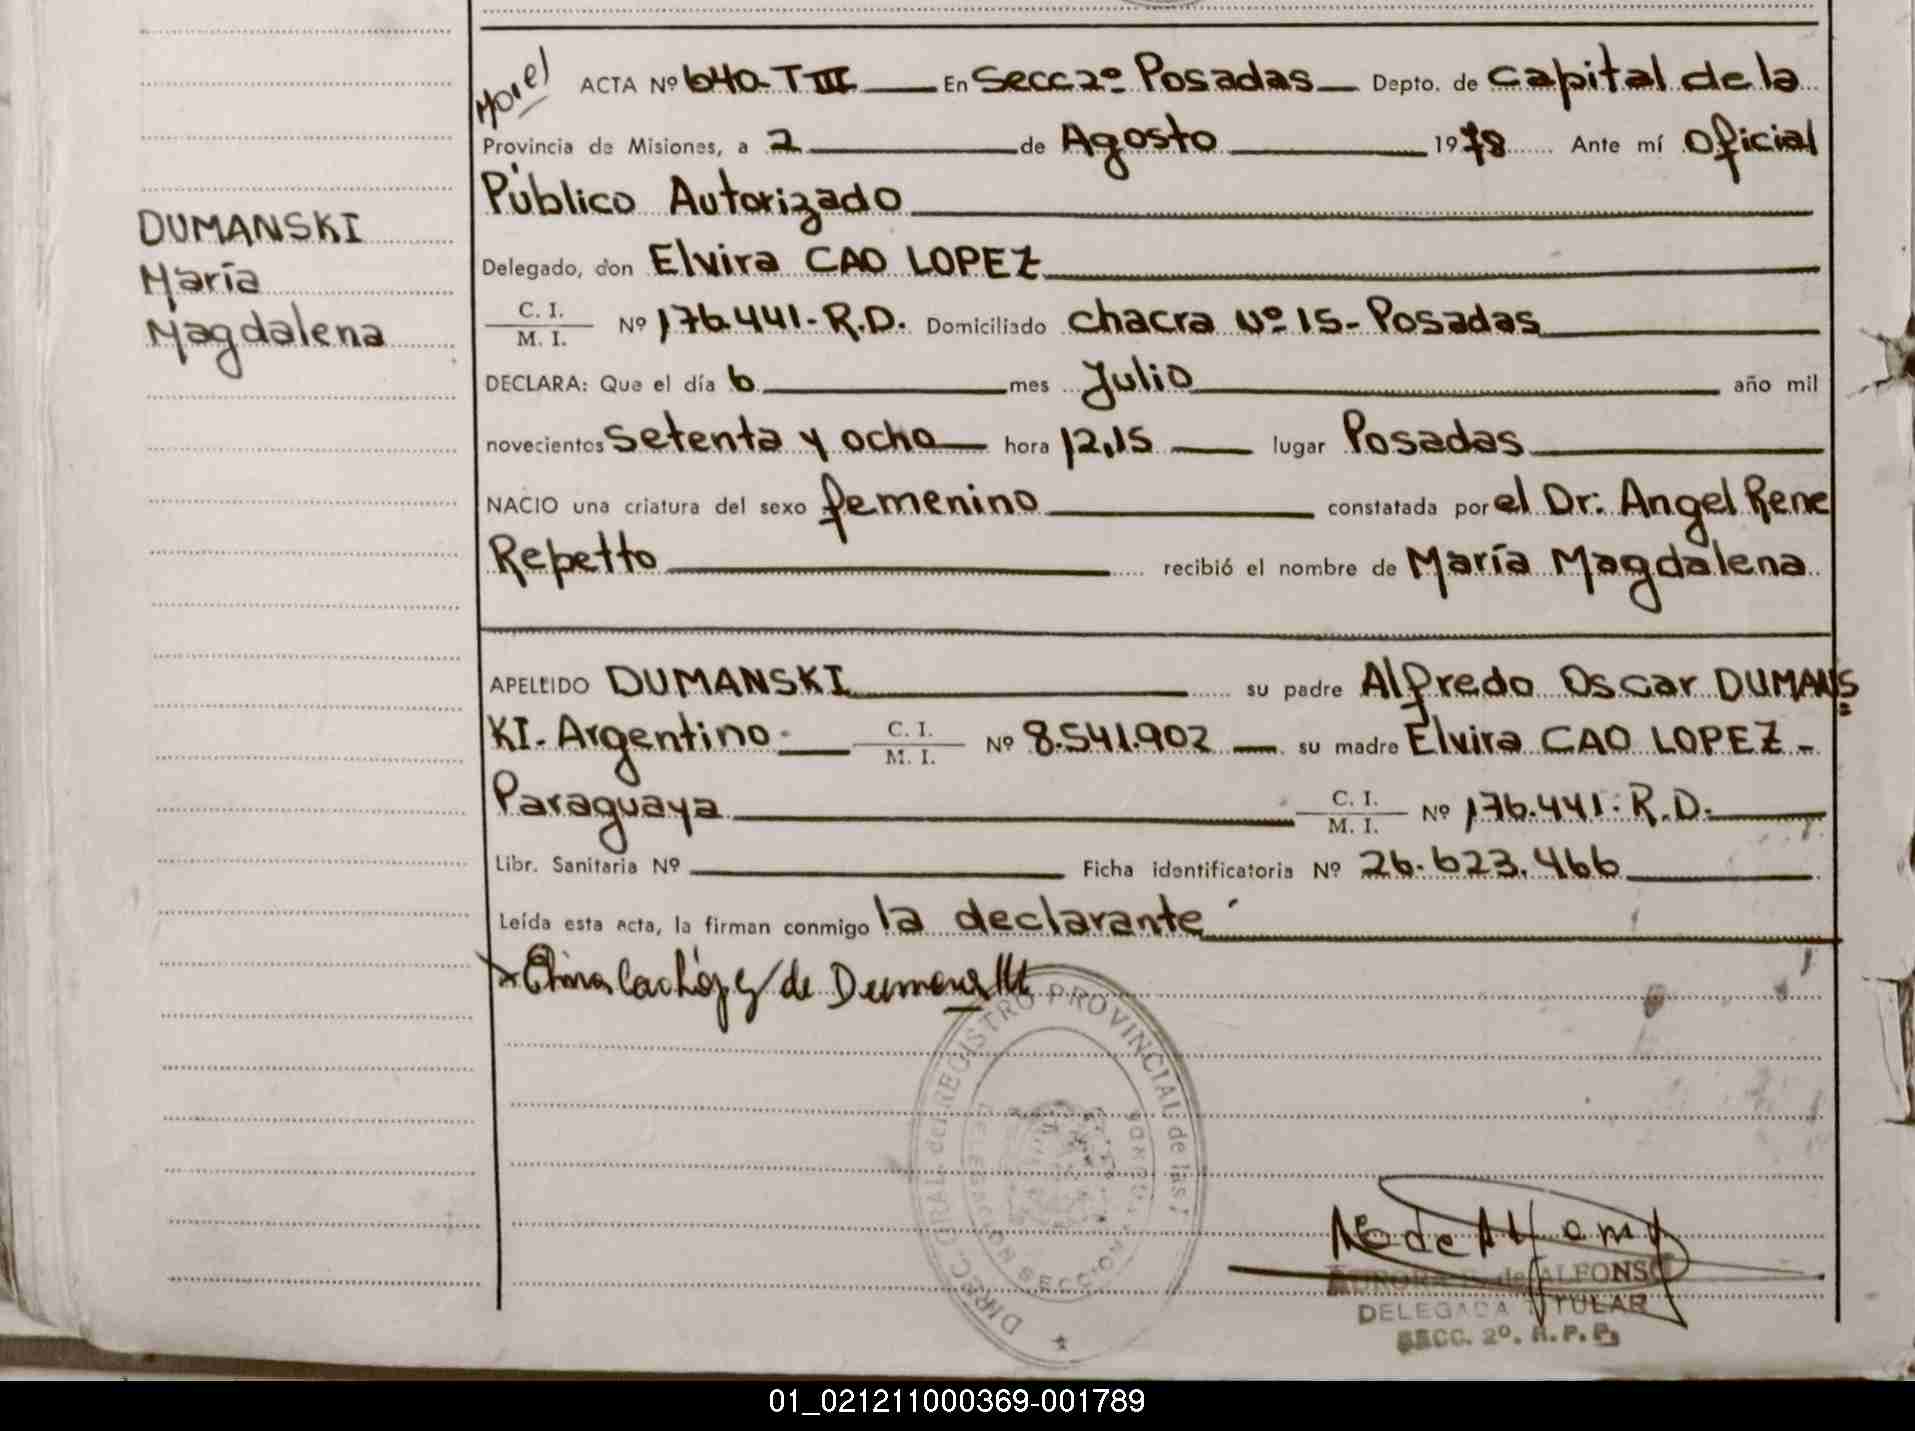 Morel
ACTA Nº 640- T III En Secc 2º Posadas Depto. de Capital de la
Provincia de Misiones, a 2 de Agosto 1978 Ante mí Oficial
Público Autorizado
DUMANSKI
María
Magdalena
Delegado, don Elvira CAO LOPEZ
C. I.
M. I. Nº 176.441- R.D. Domiciliado chacra Nº 15- Posadas
DECLARA: Que el día 6 mes Julio año mil
novecientos setenta y ocho hora 12,15 lugar Posadas
NACIO una criatura del sexo femenino constatada por el Dr: Angel Rene
Repetto recibió el nombre de María Magdalena
APELLIDO DUMANSKI su padre Alfredo Oscar DUMANS
KI- Argentino- C. I.
M. I. Nº 8.541.902 su madre Elvira CAO LOPEZ -
Paraguaya C. I.
M. I. Nº 176.441- R.D.
Libr. Sanitaria Nº Ficha identificatoria Nº 26.623.466
Leída esta acta, la firman conmigo la declarante
de Dumanski
DIREC. GRAL. del REGISTRO PROVINCIAL de las
SECCION
de ALFONSO
DELEGADA TITULAR
SECC. 2º. R. P. P.
01_021211000369-001789